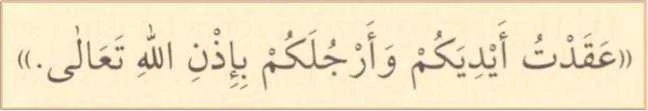 «عَقَدْتُ أَيْدِيَكُمْ وَأَرْجُلَكُمْ بِإِذْنِ اللهِ تَعَالٰى.»